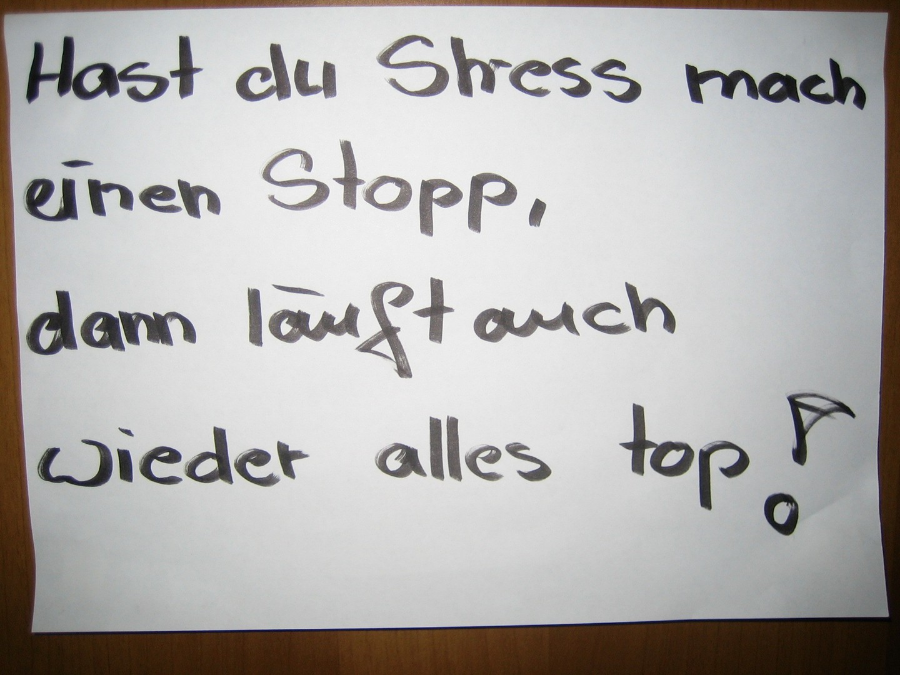 Hast du Stress mach
einen Stopp,
dann läuft auch
wieder alles top!